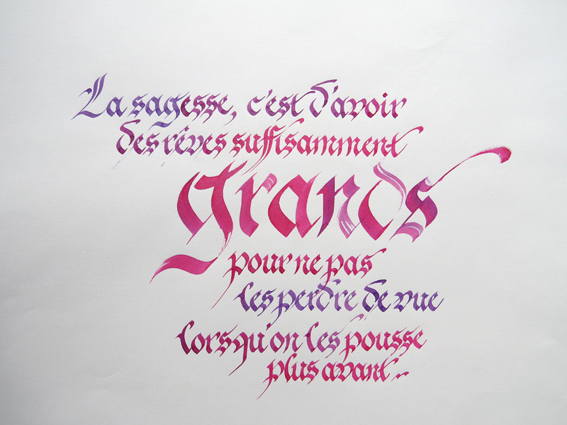 La sagesse, c'est d'avoir
des rêves suffisamment
grands
pour ne pas
les perdre de vue
lorsqu'on les pousse
plus avant..